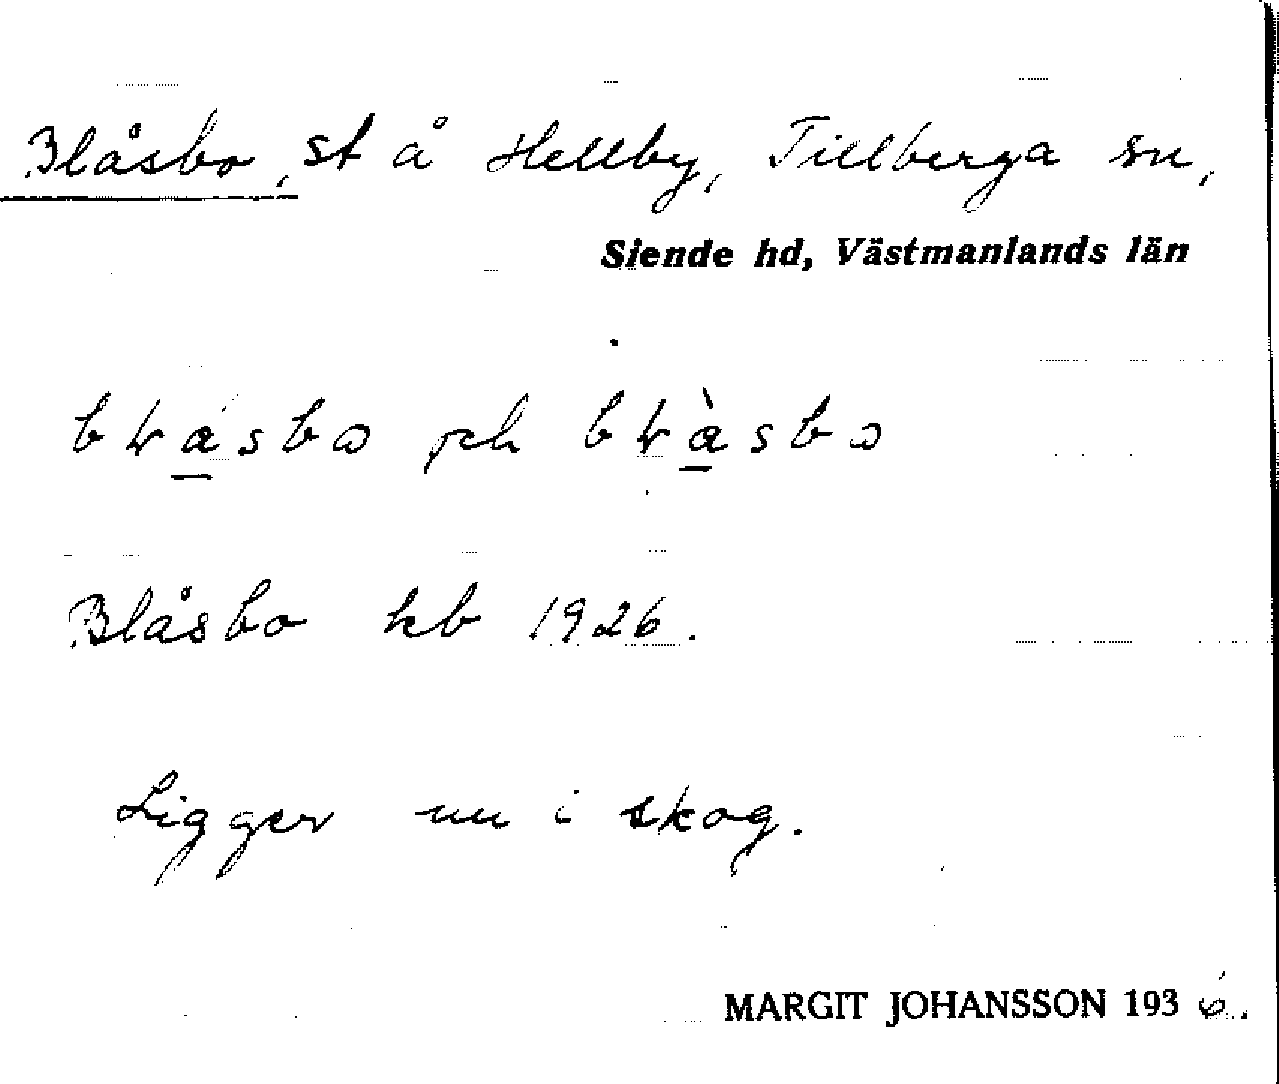 Blåsbo, st å Hellby, Tillberga sn,
Siende hd, Västmanlands län
Blåsbo kb 1926.
Ligger nu i skog.
MARGIT JOHANSSON 1936.